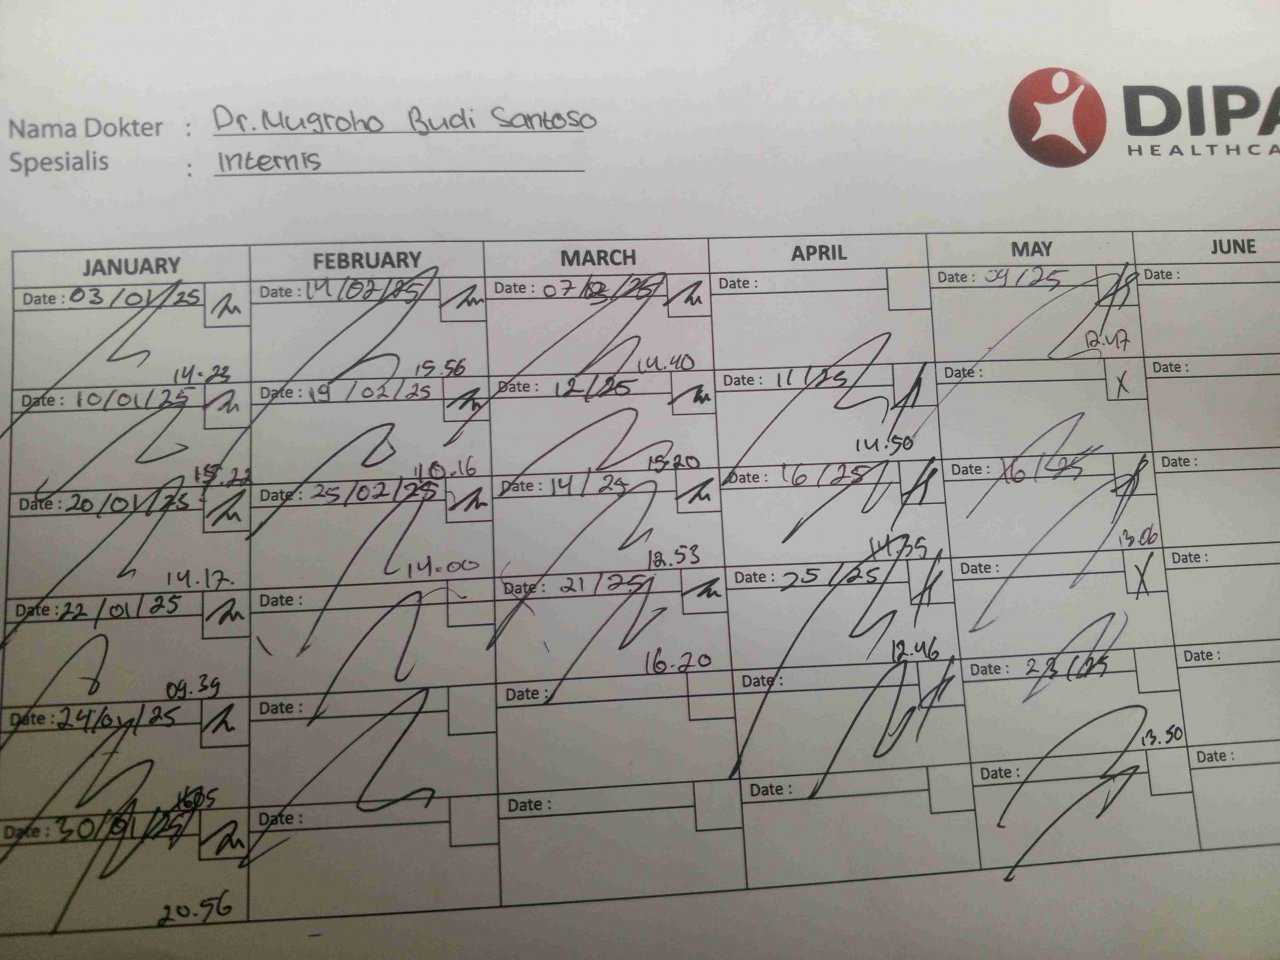 Nama Dokter : Dr. Mugroho Budi Santoso
Spesialis : Internis
DIPA
HEALTHCA
JANUARY FEBRUARY MARCH APRIL MAY JUNE
Date : 03/01/25 Date : 14/02/25 Date : 07/03/25 Date : Date : 09/25 Date :
14.23 15.56 14.40 12.47
Date : 10/01/25 Date : 19/02/25 Date : 12/25 Date : 11/25 Date : X Date :
15.22 10.16 15.20 14.50
Date : 20/01/25 Date : 25/02/25 Date : 14/25 Date : 16/25 Date : 16/25 Date :
14.17. 14.00 12.53 14.35 13.06
Date : 22/01/25 Date : Date : 21/25 Date : 25/25 Date : X Date :
09.39 16.20 12.46
Date : 24/01/25 Date : Date : Date : Date : 23/25 Date :
13.50
Date : 30/01/25 Date : Date : Date : Date : Date :
20.56